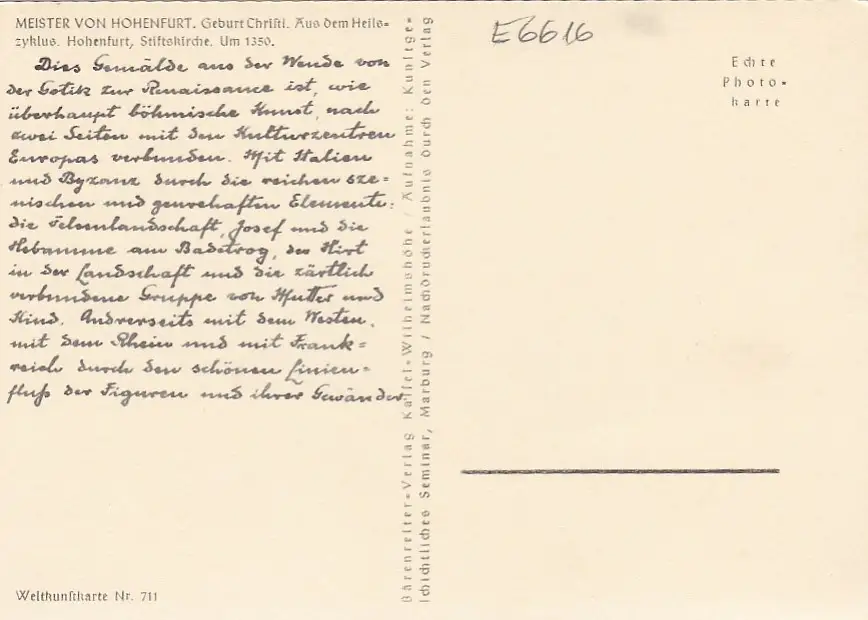 MEISTER VON HOHENFURT. Geburt Christi. Aus dem Heils-
zyklus. Hohenfurt, Stiftskirche. Um 1350.
Dies Gemälde aus der Wende von
der Gotik zur Renaissance ist, wie
überhaupt böhmische Kunst, nach
zwei Seiten mit den Kulturzentren
Europas verbunden. Mit Italien
und Byzanz durch die reichen sze-
nischen und genrehaften Elemente:
die Felsenlandschaft, Josef und die
Hebamme am Badetrog, der Hirt
in der Landschaft und die zärtlich
verbundene Gruppe von Mutter und
Kind. Andrerseits mit dem Westen,
mit dem Rhein und mit Frank-
reich durch den schönen Linien-
fluß der Figuren und ihrer Gewänder.
Weltkunstkarte Nr. 711
Bärenreiter-Verlag Kassel-Wilhelmshöhe / Aufnahme: Kunstge-
schichtliches Seminar, Marburg / Nachdruckerlaubnis durch den Verlag
E6616
Echte
Photo-
karte